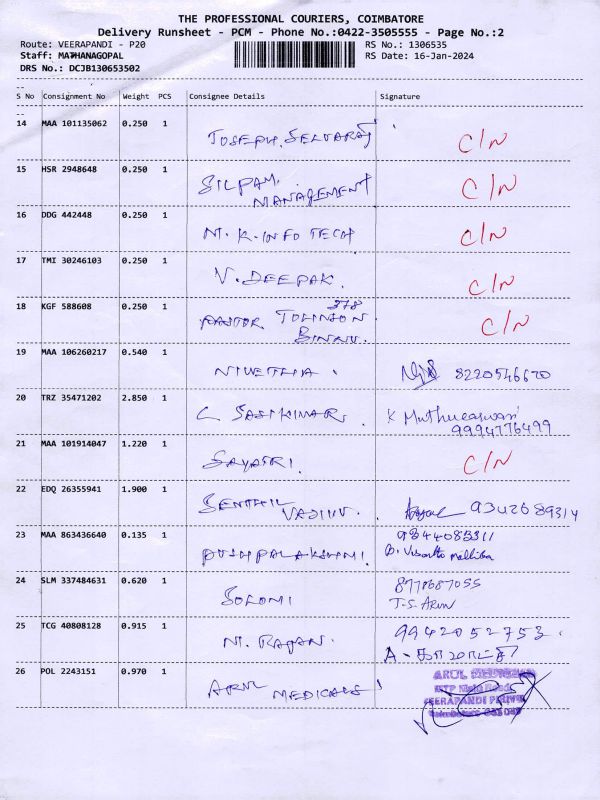 THE PROFESSIONAL COURIERS, COIMBATORE
Delivery Runsheet - PCM - Phone No.:0422-3505555 - Page No.:2
Route: VEERAPANDI - P20 RS No.: 1306535
Staff: MATHANAGOPAL RS Date: 16-Jan-2024
DRS No.: DCJB130653502
S No Consignment No Weight PCS Consignee Details Signature
14 MAA 101135062 0.250 1 JOSEPH. SELVARAJ C/N
15 HSR 2948648 0.250 1 SILPAM. C/N
MANAGEMENT
16 DDG 442448 0.250 1 M. K. INFO TECH C/N
17 TMI 30246103 0.250 1 V. DEEPAK. C/N
18 KGF 588608 0.250 1 PASTOR. C/N
19 MAA 106260217 0.540 1 NIVETHA . 8220546670
20 TRZ 35471202 2.850 1 C. SASIKUMAR. K Mutheeswari
9994776499
21 MAA 101914047 1.220 1 C/N
22 EDQ 26355941 1.900 1 SENTHIL 9342689314
VADIVU.
23 MAA 863436640 0.135 1 PUSHPALAKSHMI.
24 SLM 337484631 0.620 1 T.S. Arun
25 TCG 40808128 0.915 1 M. RAJAN. 9942052753.
26 POL 2243151 0.970 1 ARUL MEDICALS ARUL MEDICALS